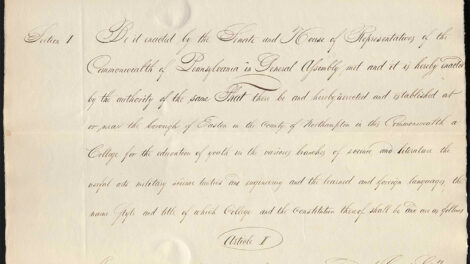 Section 1 Be it enacted by the Senate and House of Representatives of the
Commonwealth of Pennsylvania in General Assembly met and it is hereby enacted
by the authority of the same That there be and hereby is erected and established at
or near the borough of Easton in the County of Northampton in this Commonwealth a
College for the education of youth in the various branches of science and literature the
useful arts military science tactics and engineering and the learned and foreign languages the
name style and title of which College and the Constitution thereof shall be and are as follows
Article I